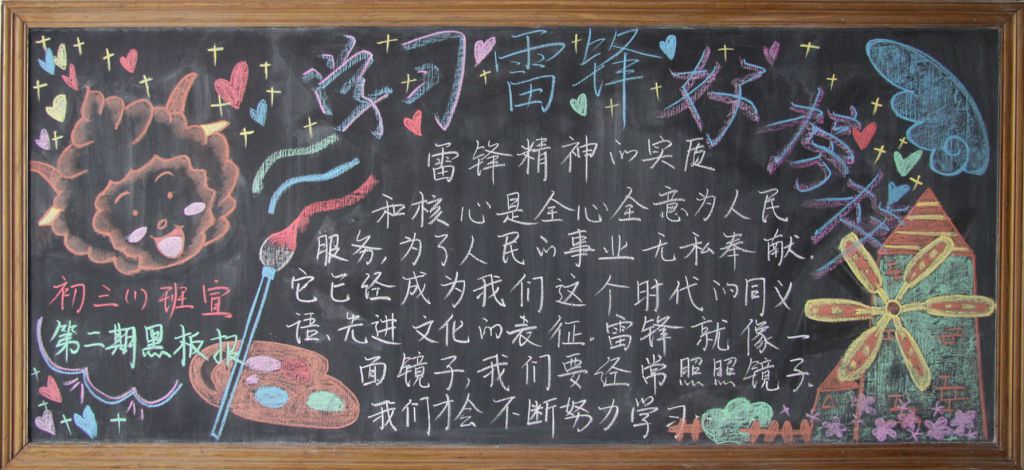 学习雷锋好榜样
雷锋精神的实质
和核心是全心全意为人民
服务,为了人民的事业无私奉献.
它已经成为我们这个时代的同义
语、先进文化的表征.雷锋就像一
面镜子,我们要经常照照镜子.
我们才会不断努力学习.
初三(1)班宣
第二期黑板报